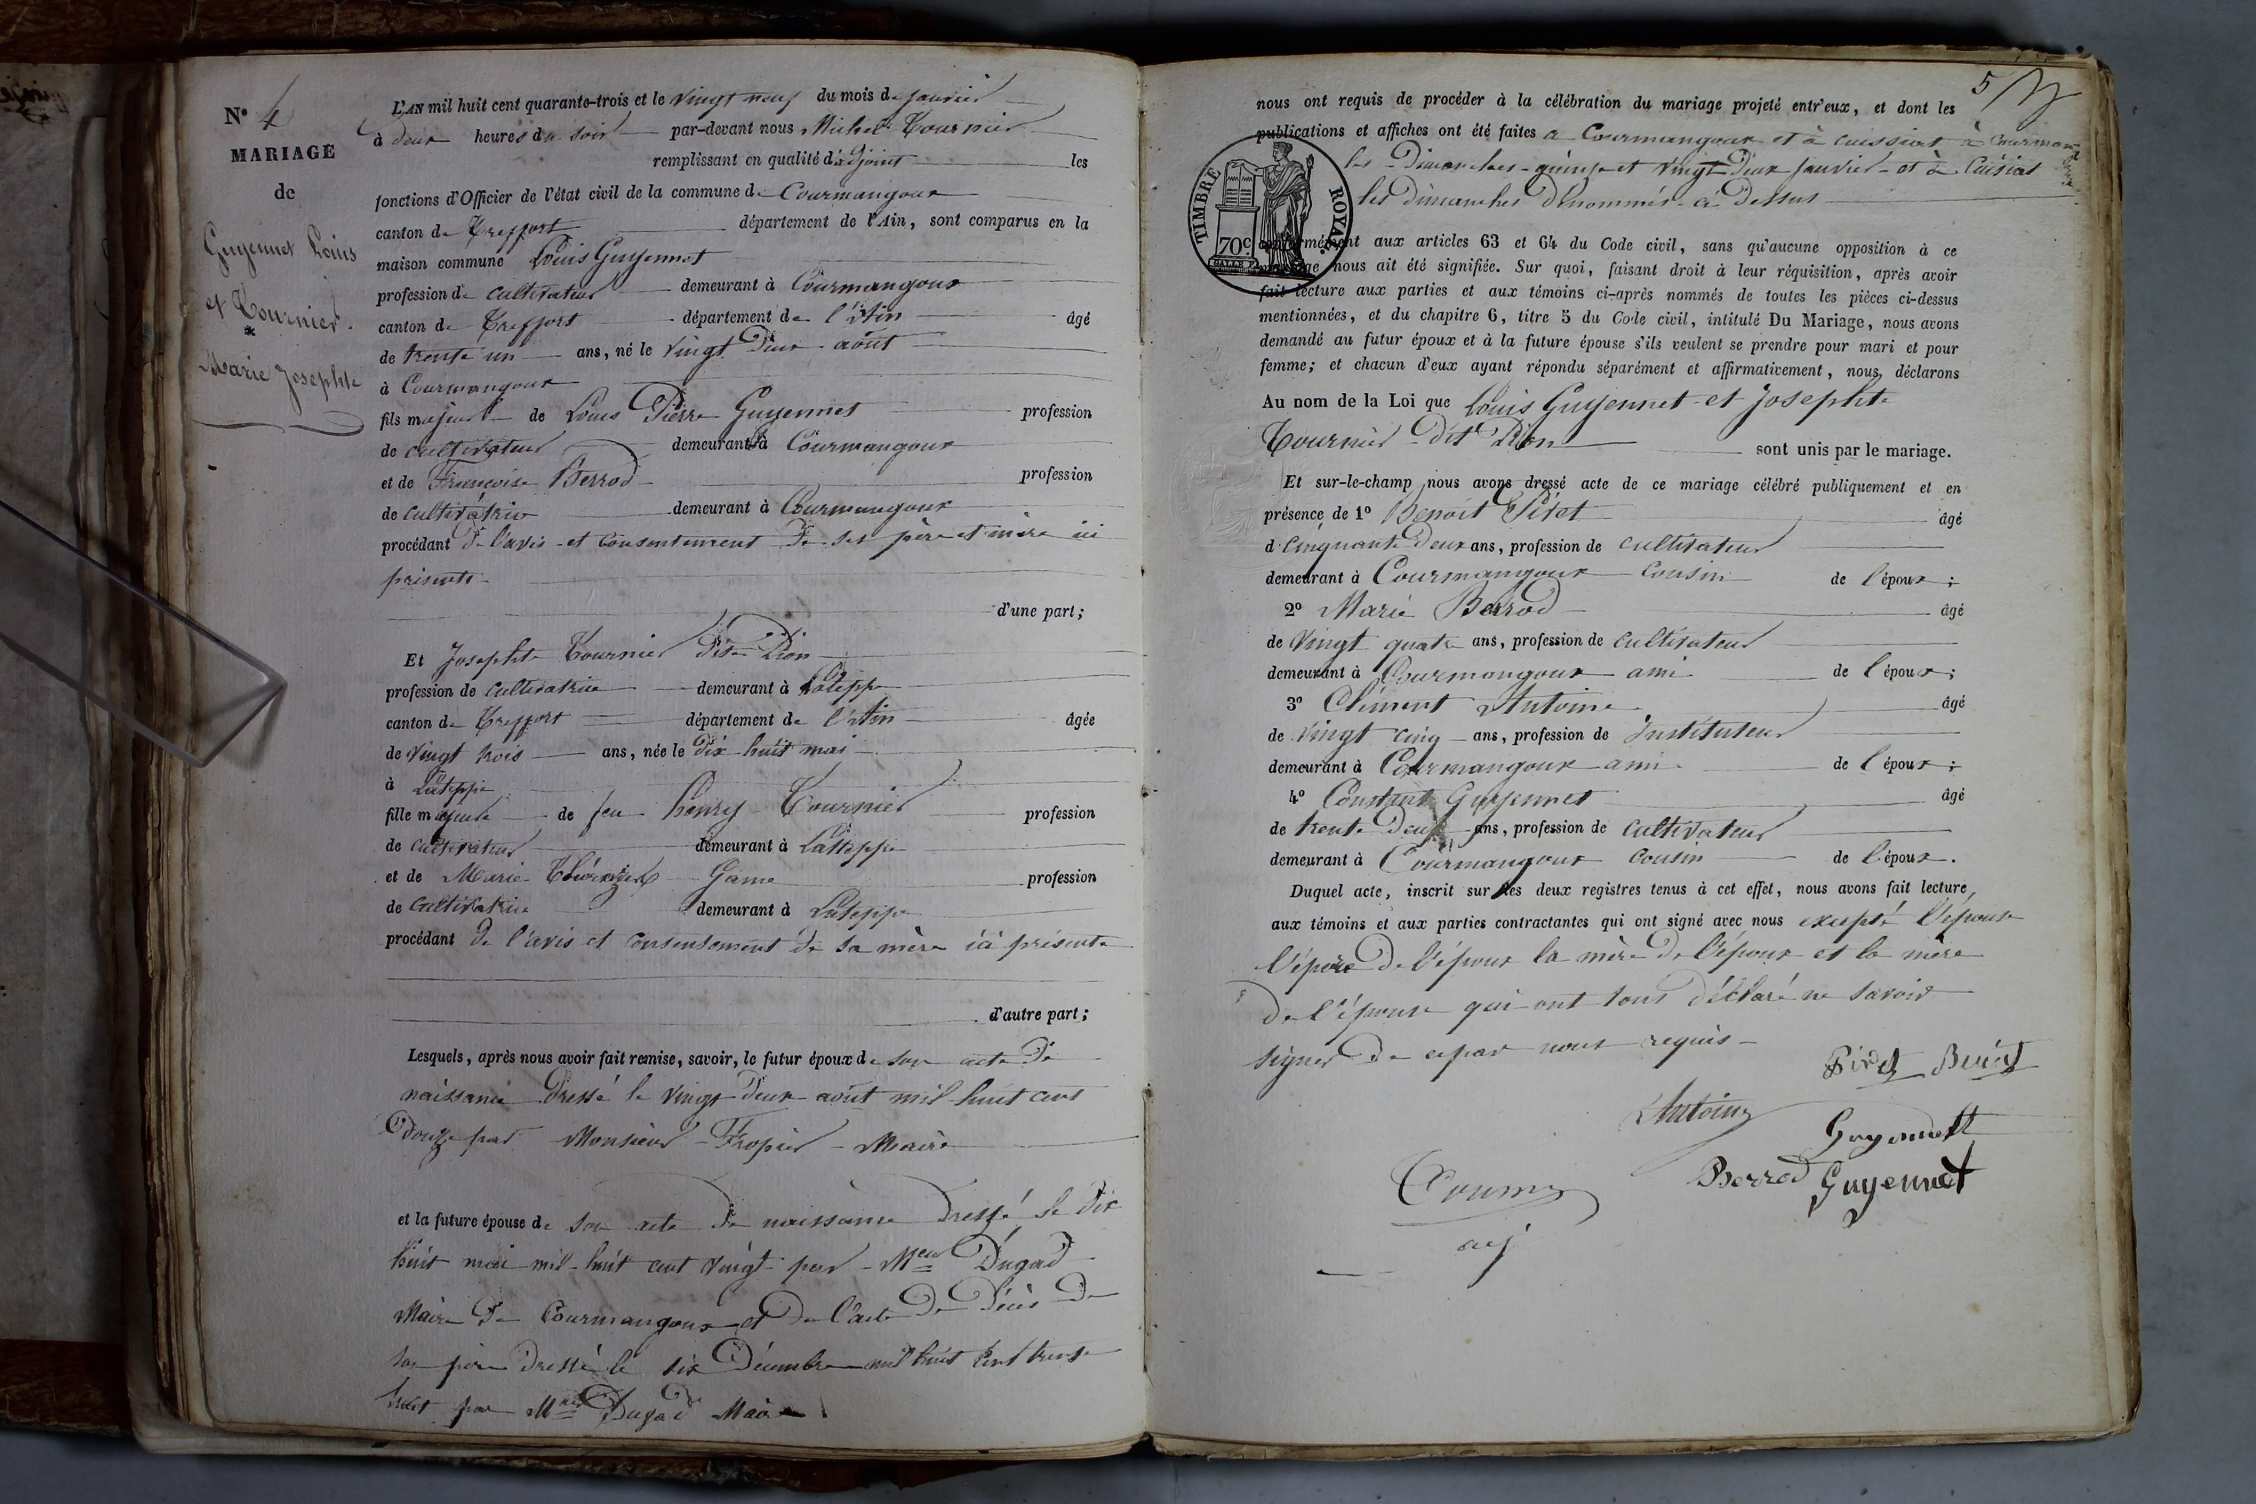 N° 4
MARIAGE
de
Guyennet Louis
et Tournier
Marie Josephte
L'AN mil huit cent quarante-trois et le vingt neuf du mois de janvier
à deux heures du soir par-devant nous Michel Tournier
remplissant en qualité d'adjoint les
fonctions d'Officier de l'état civil de la commune de Courmangoux
canton de Treffort département de l'Ain, sont comparus en la
maison commune Louis Guyennet
profession de cultivateur demeurant à Courmangoux
canton de Treffort département de l'Ain âgé
de trente un ans, né le vingt deux août
à Courmangoux
fils majeur de Louis Pierre Guyennet profession
de cultivateur demeurant à Courmangoux
et de Françoise Berrod profession
de cultivatrice demeurant à Courmangoux
procédant de l'avis et consentement de ses père et mère ici
présents
d'une part;
Et Josephte Tournier dite Lion
profession de cultivatrice demeurant à Lateppe
canton de Treffort département de l'Ain âgée
de vingt trois ans, née le dix huit mai
à Lateppe
fille majeure de feu henry Tournier profession
de cultivateur demeurant à Lateppe
et de Marie Game profession
de cultivatrice demeurant à Lateppe
procédant de l'avis et consentement de sa mère ici présente
d'autre part;
Lesquels, après nous avoir fait remise, savoir, le futur époux de son acte de
naissance dressé le vingt deux août mil huit cent
douze par Monsieur Fropier Maire
et la future épouse de son acte de naissance dressé le dix
huit mai mil huit cent vingt par Dugad
Maire de Courmangoux et de l'acte de décès de
son père dressé le six Décembre mil huit cent trente
huit par Dugad Maire
5
nous ont requis de procéder à la célébration du mariage projeté entr'eux, et dont les
publications et affiches ont été faites à Courmangoux et à cuissiat à Courman
les Dimanches quinze et vingt deux janvier et à Cuisiat
les dimanches dénommés ci dessus
TIMBRE ROYAL
70c
conformément aux articles 63 et 64 du Code civil, sans qu'aucune opposition à ce
mariage nous ait été signifiée. Sur quoi, faisant droit à leur réquisition, après avoir
fait lecture aux parties et aux témoins ci-après nommés de toutes les pièces ci-dessus
mentionnées, et du chapitre 6, titre 5 du Code civil, intitulé Du Mariage, nous avons
demandé au futur époux et à la future épouse s'ils veulent se prendre pour mari et pour
femme; et chacun d'eux ayant répondu séparément et affirmativement, nous, déclarons
Au nom de la Loi que Louis Guyennet et Josephte
Tournier dite Lion sont unis par le mariage.
Et sur-le-champ nous avons dressé acte de ce mariage célébré publiquement et en
présence de 1° Benoit Pirat âgé
de cinquante deux ans, profession de cultivateur
demeurant à Courmangoux cousin de l'époux;
2° Marie Berrod âgé
de vingt quatre ans, profession de cultivateur
demeurant à Courmangoux ami de l'époux;
3° Clément Antoine âgé
de vingt cinq ans, profession de instituteur
demeurant à Courmangoux ami de l'époux;
4° Constant Guyennet âgé
de trente deux ans, profession de cultivateur
demeurant à Courmangoux cousin de l'époux.
Duquel acte, inscrit sur les deux registres tenus à cet effet, nous avons fait lecture
aux témoins et aux parties contractantes qui ont signé avec nous excepté l'épouse
de l'époux la mère de l'époux et la mère
de l'épouse qui ont tous déclaré ne savoir
signer de ce par nous requis
Antoine
Guyennet
Berrod Guyennet
adj